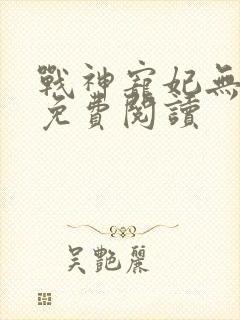 戰神寵妃無
免費閱讀
吳艷麗